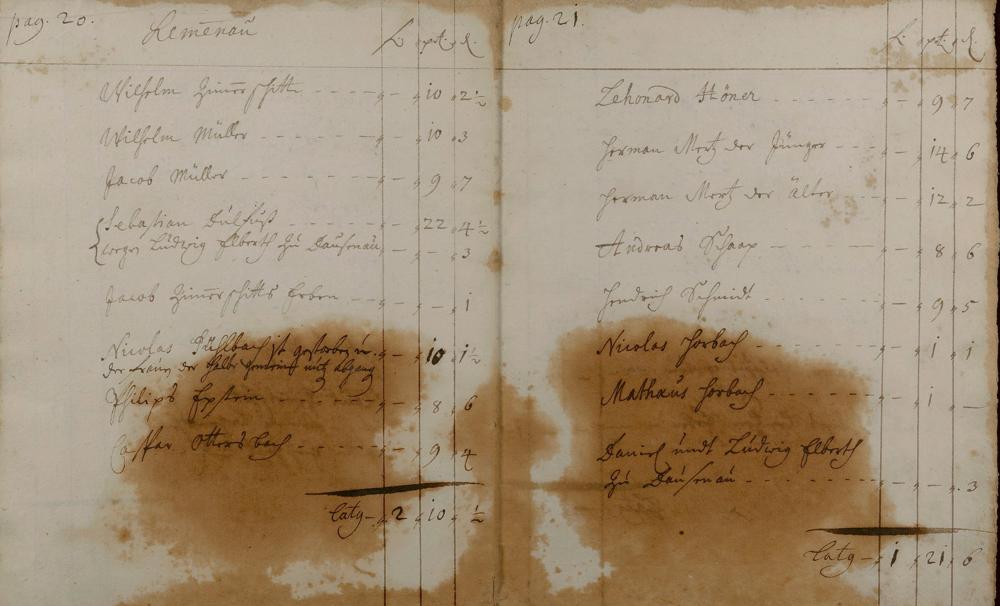 pag. 20. Kemenaŭ L. pt. d.
Wilhelm Zim̄erschitt - - - - - " — " 10 " 2½
Wilhelm Müller - - - - - " — " 10 " 3
Jacob Müller - - - - - " — " 9 " 7
Sebastian Dülfŭß - - - - - " — " 22 " 4½
wegen Lŭdwig Elberth zŭ Daŭsenaŭ " — " — " 3
Jacob Zim̄erschitts Erben - - - " — " — " 1
Nicolas Bŭhlbach ist gestorben - " — " 10 " 1½
der halbe abgang
Philips Epstein - - - - - " — " 8 " 6
Caspar Ottersbach - - - - - " — " 9 " 4
Latg — " 2 " 10 " ½
pag. 21. L. pt. d.
Lehonard Höner - - - - - " — " 9 " 7
Herman Mertz der Jünger - - - " — " 14 " 6
Herman Mertz der Älter - - - " — " 12 " 2
Andreas Schaap - - - - - " — " 8 " 6
Hendrich Schmidt - - - - - " — " 9 " 5
Nicolas Horbach - - - - - " — " 1 " 1
Mathaŭs Horbach - - - - - " — " 1 " —
Daniel ŭndt Lŭdwig Elberth
zŭ Daŭsenaŭ - - - - - " — " — " 3
Latg — " 1 " 21 " 6